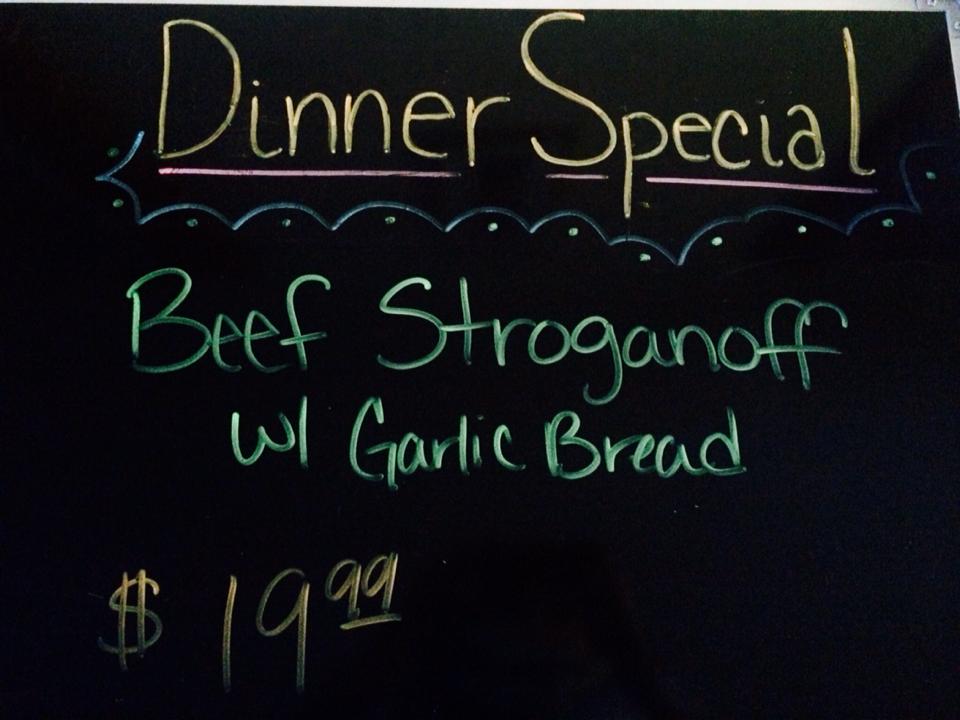 Dinner Special
Beef Stroganoff
w/ Garlic Bread
$ 19 99